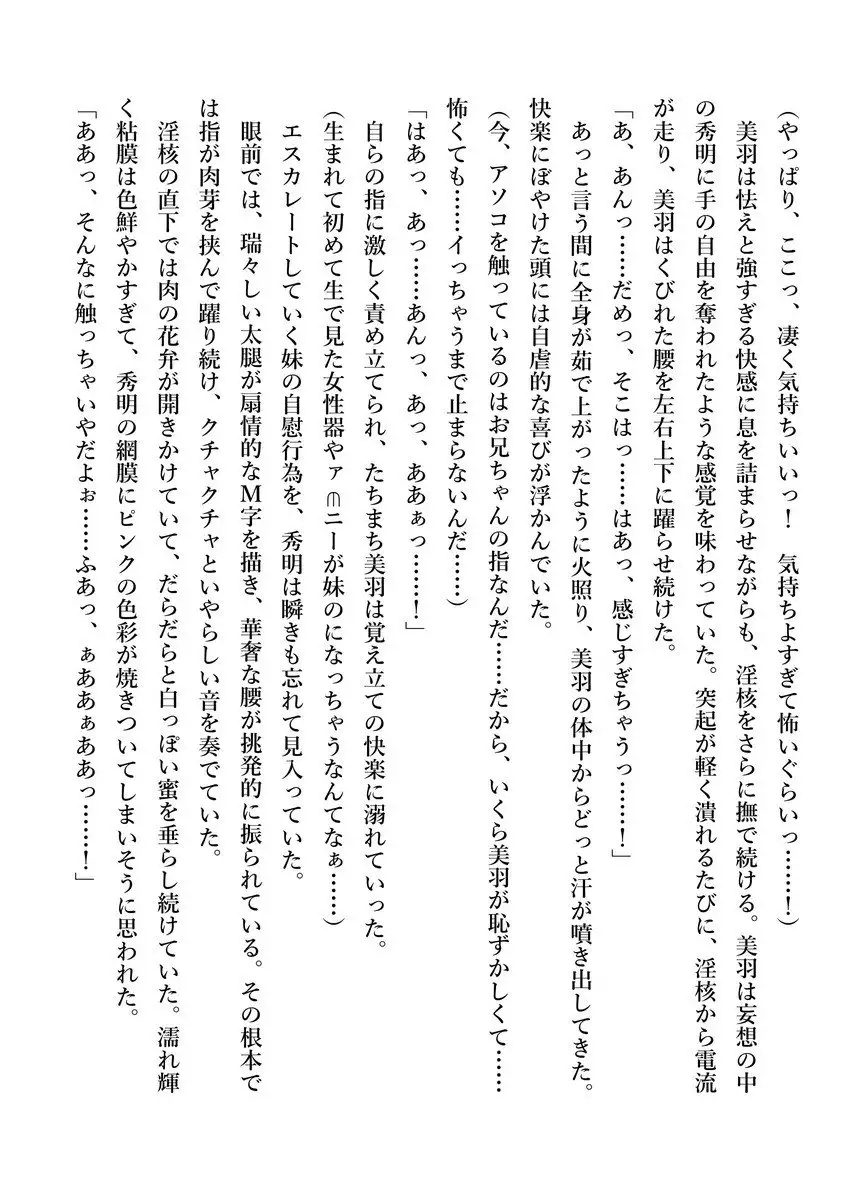 (やっぱり、ここっ、凄く気持ちいいっ!　気持ちよすぎて怖いぐらいっ……!)
　美羽は怯えと強すぎる快感に息を詰まらせながらも、淫核をさらに撫で続ける。美羽は妄想の中
の秀明に手の自由を奪われたような感覚を味わっていた。突起が軽く潰れるたびに、淫核から電流
が走り、美羽はくびれた腰を左右上下に躍らせ続けた。
「あ、あんっ……だめっ、そこはっ……はあっ、感じすぎちゃうっ……!」
　あっと言う間に全身が茹で上がったように火照り、美羽の体中からどっと汗が噴き出してきた。
快楽にぼやけた頭には自虐的な喜びが浮かんでいた。
(今、アソコを触っているのはお兄ちゃんの指なんだ……だから、いくら美羽が恥ずかしくて……
怖くても……イっちゃうまで止まらないんだ……)
「はあっ、あっ……あんっ、あっ、ああぁっ……!」
　自らの指に激しく責め立てられ、たちまち美羽は覚え立ての快楽に溺れていった。
(生まれて初めて生で見た女性器やァ∩ニーが妹のになっちゃうなんてなぁ……)
　エスカレートしていく妹の自慰行為を、秀明は瞬きも忘れて見入っていた。
　眼前では、瑞々しい太腿が扇情的なM字を描き、華奢な腰が挑発的に振られている。その根本で
は指が肉芽を挟んで躍り続け、クチャクチャといやらしい音を奏でていた。
　淫核の直下では肉の花弁が開きかけていて、だらだらと白っぽい蜜を垂らし続けていた。濡れ輝
く粘膜は色鮮やかすぎて、秀明の網膜にピンクの色彩が焼きついてしまいそうに思われた。
「ああっ、そんなに触っちゃいやだよぉ……ふあっ、ぁああぁああっ……!」